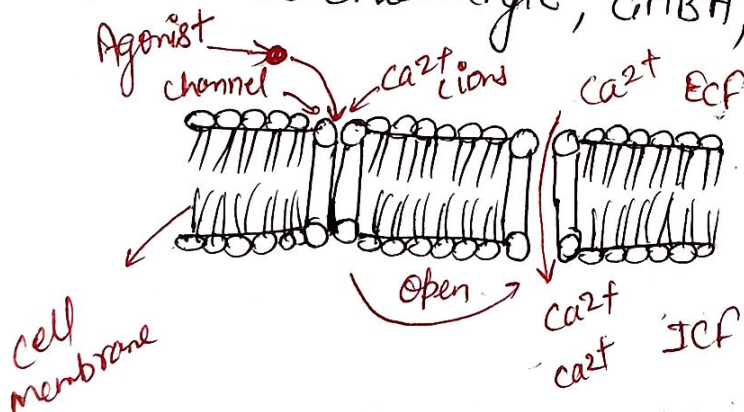 , GABA,
Agonist
channel
Ca2+
ions
Ca2+ ECF
Open
Ca2+
Ca2+
ICF
cell
membrane